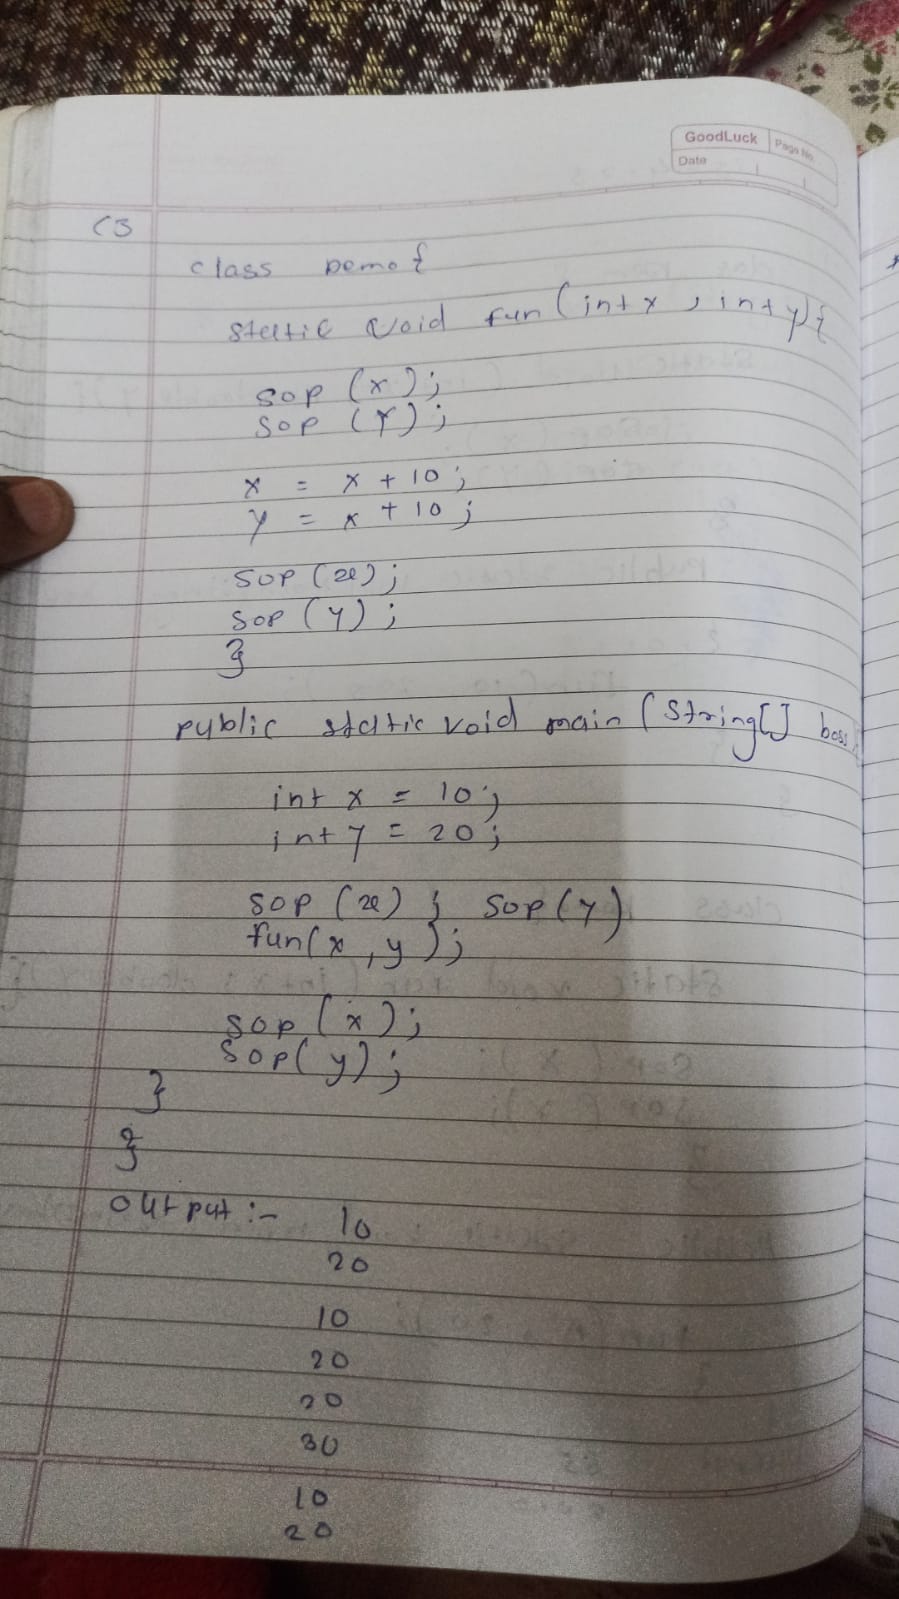 GoodLuck Page No.
Date
C3
class Demo {
static void fun (int x , int y) {
sop (x) ;
sop (Y) ;
x = x + 10 ;
y = x + 10 ;
sop (x) ;
sop (y) ;
}
public static void main (String[] boss
int x = 10 ;
int y = 20 ;
sop (x) ; sop (y)
fun(x , y ) ;
sop (x) ;
sop( y) ;
}
}
output :- 10
20
10
20
20
30
10
20